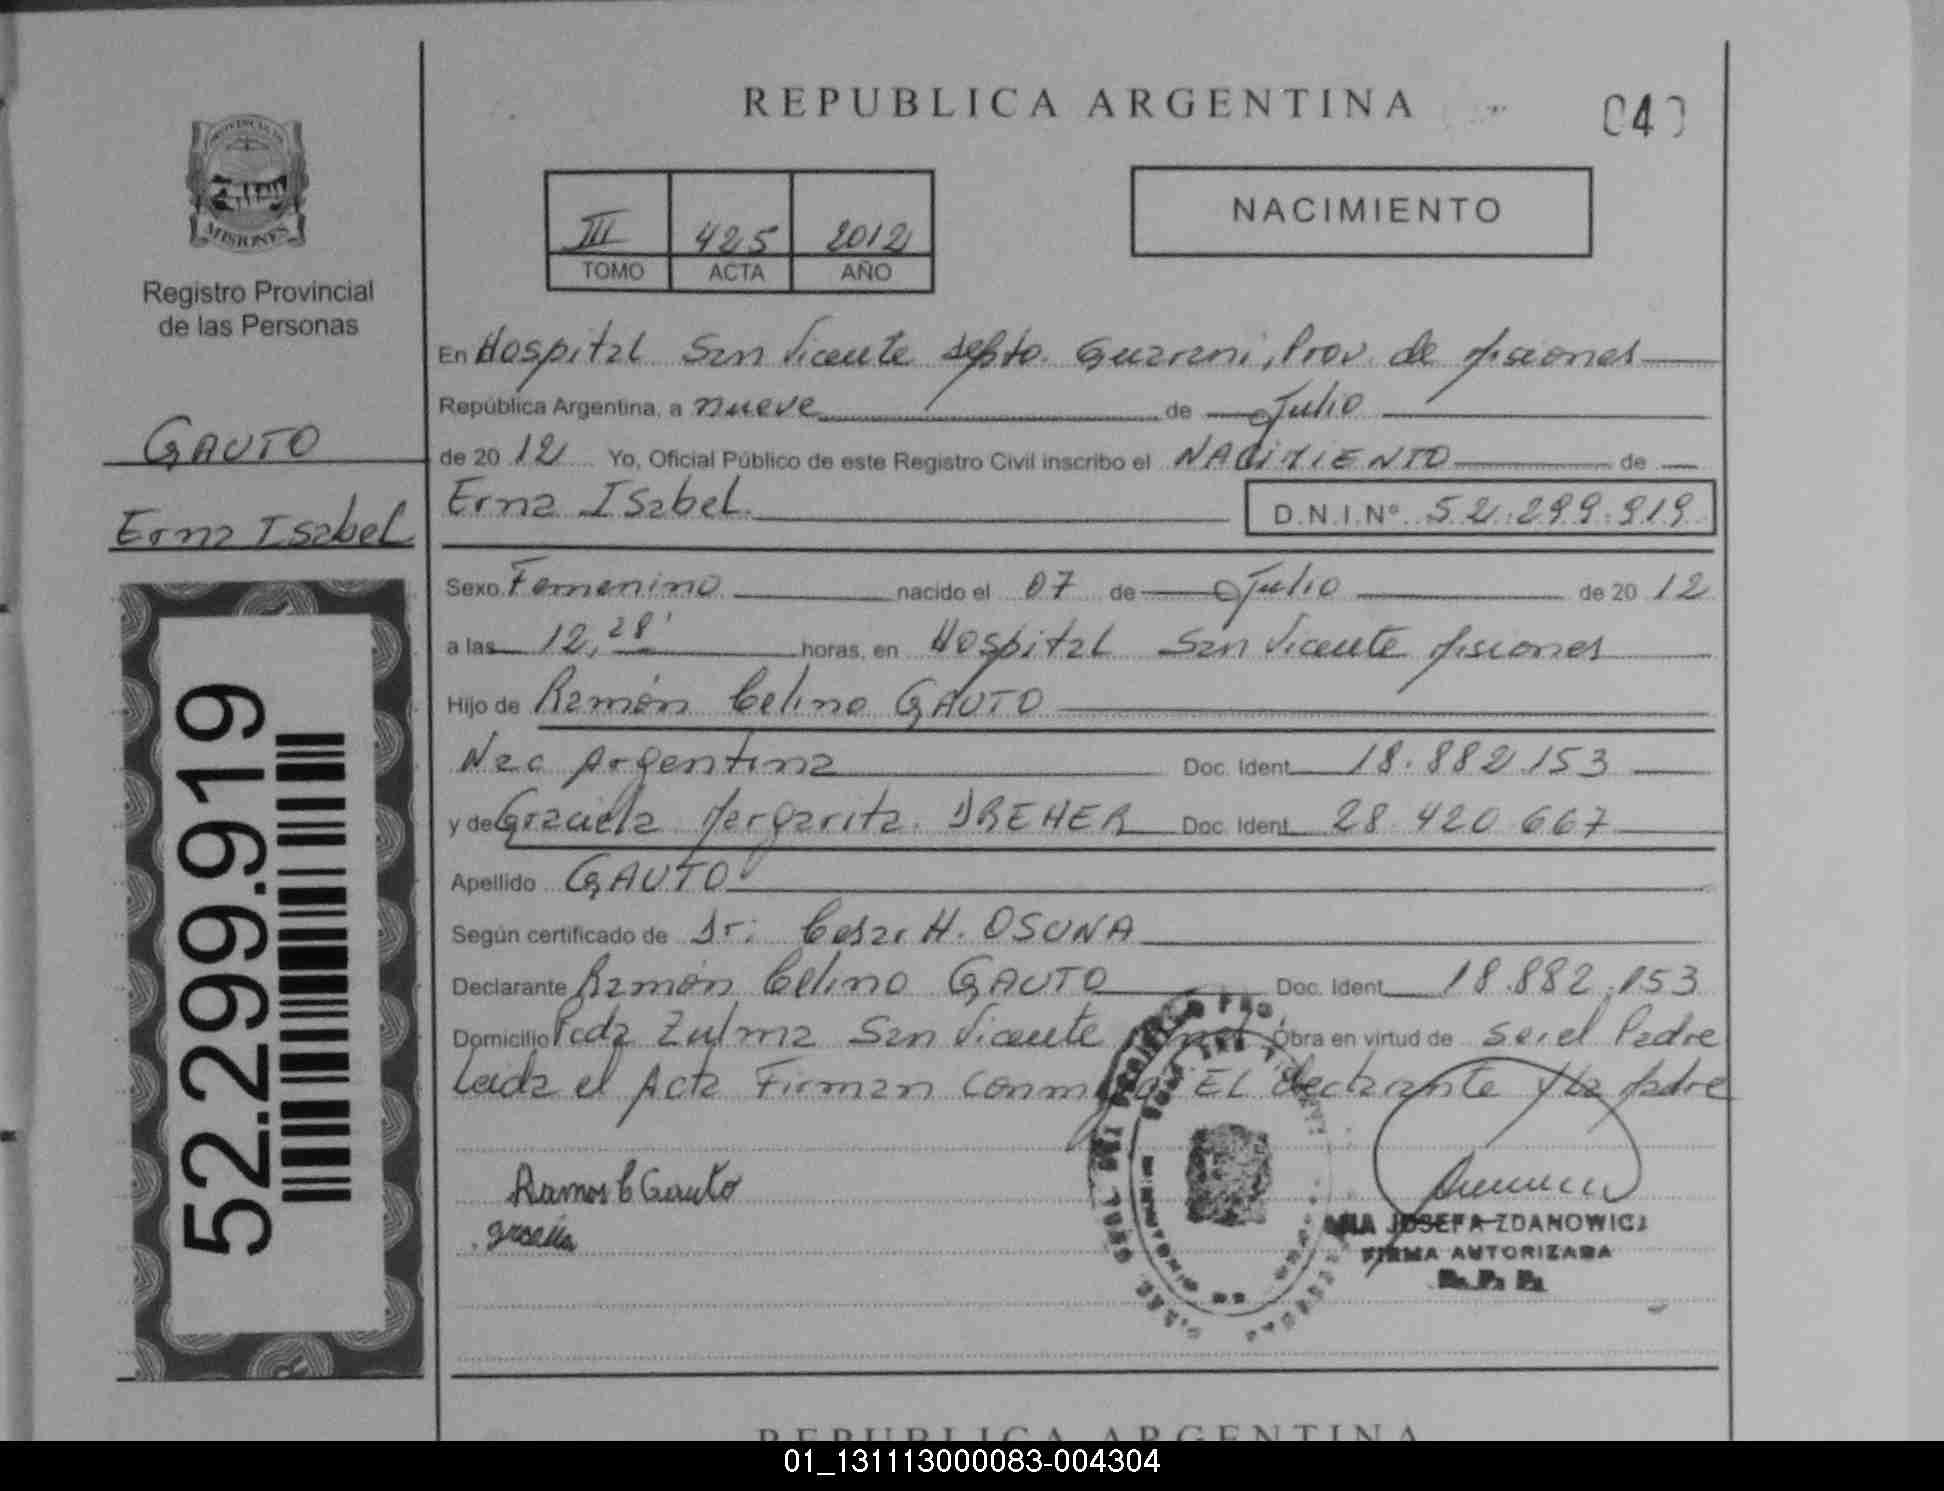 REPUBLICA ARGENTINA
040
PROVINCIA DE
MISIONES
Registro Provincial
de las Personas
III 425 2012
TOMO ACTA AÑO
NACIMIENTO
En Hospital San Vicente depto. Guarani, Prov. de Misiones
República Argentina, a nueve de Julio
de 20 12 Yo, Oficial Público de este Registro Civil inscribo el NACIMIENTO de
GAUTO
Erna Isabel
Erna Isabel D.N.I.Nº 52.299.919
Sexo Femenino nacido el 07 de Julio de 20 12
a las 12,28' horas, en Hospital San Vicente Misiones
Hijo de Ramón Celino GAUTO
Nac Argentina Doc. Ident. 18.882.153
y de Graciela Margarita DREHER Doc. Ident. 28.420.667
Apellido GAUTO
Según certificado de Dr. Cesar H. OSUNA
Declarante Ramón Celino GAUTO Doc. Ident. 18.882.153
Domicilio Pcda Zulma San Vicente Obra en virtud de ser el Padre
Leida el Acta Firman conmigo EL declarante y la Madre
52.299.919
Ramos C Gauto
graciela
JOSEFA ZDANOWICZ
FIRMA AUTORIZADA
R. P. P.
REPUBLICA ARGENTINA
01_131113000083-004304